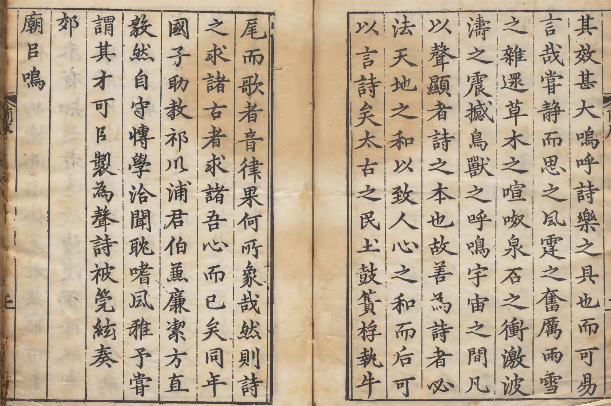 其效甚大嗚呼詩樂之具也而可易
言哉甞静而思之風霆之奮厲雨雪
之雜遝草木之喧呶泉石之衝激波
濤之震撼鳥獸之呼鳴宇宙之間凡
以聲顯者詩之本也故善為詩者必
法天地之和以致人心之和而后可
以言詩矣太古之民土鼓蕢桴執牛
尾而歌者音律果何所象哉然則詩
之求諸古者求諸吾心而已矣同年
國子助教祁川浦君伯䕫廉潔方直
毅然自守博學洽聞耽嗜風雅予甞
謂其才可㠯製為聲詩被筦絃奏
郊
廟㠯鳴